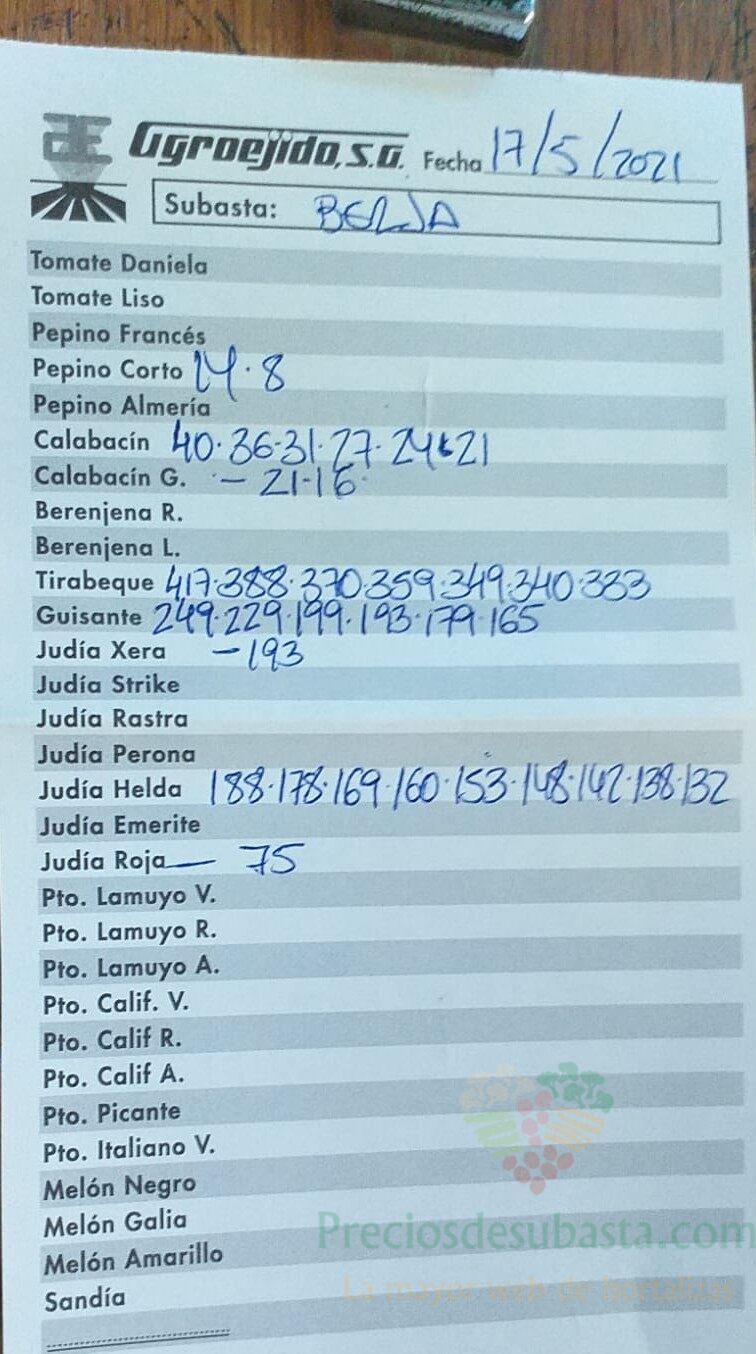 Agroejido, S.A. Fecha 17/5/2021
Subasta: BERJA
Tomate Daniela
Tomate Liso
Pepino Francés
Pepino Corto 14·8
Pepino Almería
Calabacín 40·36·31·27·24·21
Calabacín G. - 21·16·
Berenjena R.
Berenjena L.
Tirabeque 417·388·370·359·349·340·333
Guisante 249·229·199·193·179·165
Judía Xera - 193
Judía Strike
Judía Rastra
Judía Perona
Judía Helda 188·178·169·160·153·148·142·138·132
Judía Emerite
Judía Roja — 75
Pto. Lamuyo V.
Pto. Lamuyo R.
Pto. Lamuyo A.
Pto. Calif. V.
Pto. Calif R.
Pto. Calif A.
Pto. Picante
Pto. Italiano V.
Melón Negro
Melón Galia
Melón Amarillo
Sandía
Preciosdesubasta.com
La mayor web de hortalizas